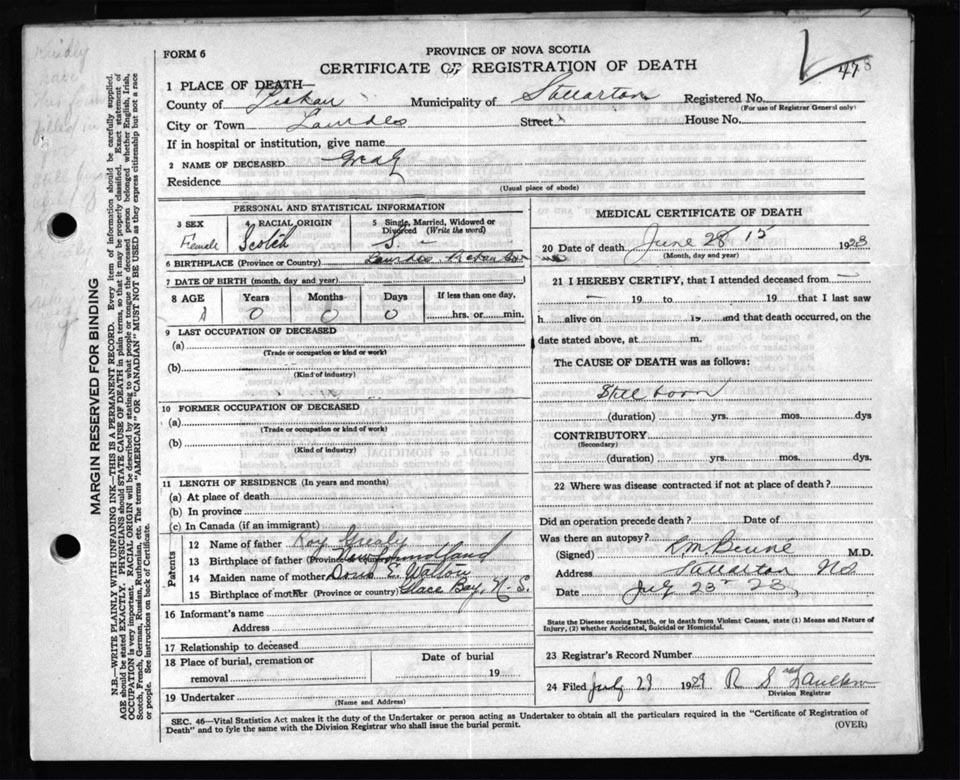 FORM 6
PROVINCE OF NOVA SCOTIA
CERTIFICATE OF REGISTRATION OF DEATH
478
1 PLACE OF DEATH—
County of Pictou Municipality of Stellarton Registered No.
(For use of Registrar General only)
City or Town Lourdes Street House No.
If in hospital or institution, give name
2 NAME OF DECEASED
Residence
(Usual place of abode)
PERSONAL AND STATISTICAL INFORMATION
3 SEX
Female
4 RACIAL ORIGIN
Scotch
5 Single, Married, Widowed or Divorced (Write the word)
S. —
6 BIRTHPLACE (Province or Country) Lourdes, Pictou Co
7 DATE OF BIRTH (month, day and year)
8 AGE Years Months Days If less than one day,
0 0 0 hrs. or min.
9 LAST OCCUPATION OF DECEASED
(a)
(Trade or occupation or kind or work)
(b)
(Kind of industry)
10 FORMER OCCUPATION OF DECEASED
(a)
(Trade or occupation or kind or work)
(b)
(Kind of industry)
11 LENGTH OF RESIDENCE (In years and months)
(a) At place of death
(b) In province
(c) In Canada (if an immigrant)
Parents
12 Name of father Roy
13 Birthplace of father (Province or country) Newfoundland
14 Maiden name of mother Doris E. Walton
15 Birthplace of mother (Province or country) Glace Bay, N.S.
16 Informant's name
Address
17 Relationship to deceased
18 Place of burial, cremation or removal
Date of burial
19
19 Undertaker
(Name and Address)
MEDICAL CERTIFICATE OF DEATH
20 Date of death June 28 15 1923
(Month, day and year)
21 I HEREBY CERTIFY, that I attended deceased from —
— 19 to 19 that I last saw
h alive on 19 and that death occurred, on the
date stated above, at m.
The CAUSE OF DEATH was as follows:
Still born
(duration) yrs. mos. dys
CONTRIBUTORY
(Secondary)
(duration) yrs. mos. dys.
22 Where was disease contracted if not at place of death?
Did an operation precede death? Date of
Was there an autopsy?
(Signed) M.D.
Address Stellarton N.S.
Date July 23 23
State the Disease causing Death, or in death from Violent Causes, state (1) Means and Nature of Injury, (2) whether Accidental, Suicidal or Homicidal.
23 Registrar's Record Number
24 Filed July 29 1929 R S
Division Registrar
SEC. 46—Vital Statistics Act makes it the duty of the Undertaker or person acting as Undertaker to obtain all the particulars required in the "Certificate of Registration of
Death" and to fyle the same with the Division Registrar who shall issue the burial permit.
(OVER)
MARGIN RESERVED FOR BINDING
N.B.—WRITE PLAINLY WITH UNFADING INK—THIS IS A PERMANENT RECORD. Every item of information should be carefully supplied.
AGE should be stated EXACTLY. PHYSICIANS should STATE CAUSE OF DEATH in plain terms, so that it may be properly classified. Exact statement of
OCCUPATION is very important. RACIAL ORIGIN will be described by stating to what people or tongue the deceased person belonged whether English, Irish,
Scotch, French, German, Russian, Ruthenian, etc. The terms "AMERICAN" or "CANADIAN" MUST NOT BE USED as they express citizenship but not a race
or people. See instructions on back of Certificate.